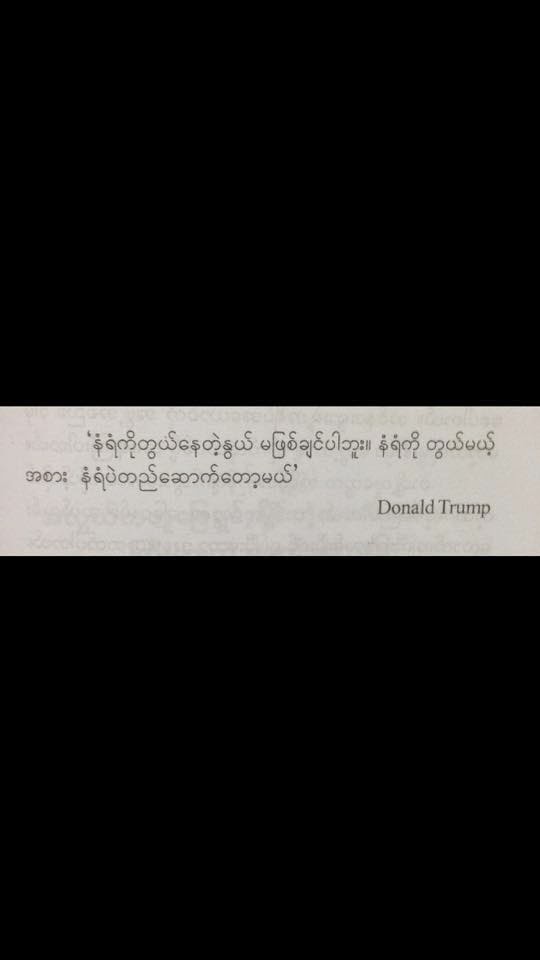 ‘နံရံကိုတွယ်နေတဲ့နွယ် မဖြစ်ချင်ပါဘူး။ နံရံကို တွယ်မယ့်
အစား နံရံပဲတည်ဆောက်တော့မယ်’
Donald Trump